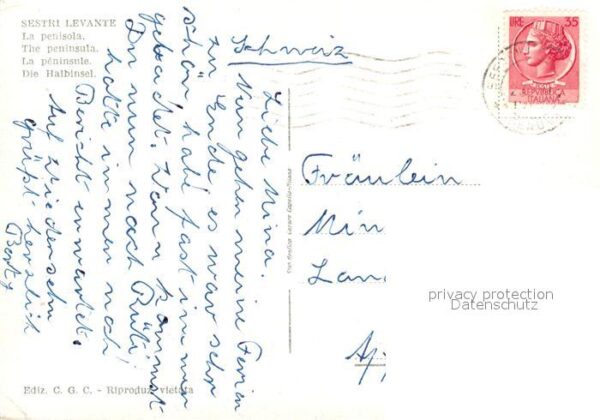 SESTRI LEVANTE
La penisola.
The peninsula.
La péninsule.
Die Halbinsel.
Schweiz
LIRE 35
REPVBBLICA
ITALIANA
Liebe Mina.
Nun gehen meine Ferien
zu Ende, es war sehr
schön habe fast immer
gebadet. Wann kommst
Du nun nach Rüti?
hatte immer noch
Bericht erwartet.
Auf Wiedersehn
grüsst herzlich
Berty
Fräulein
Min
Lan
Ap
privacy protection
Datenschutz
Ediz. C. G. C. - Riproduz. vietata